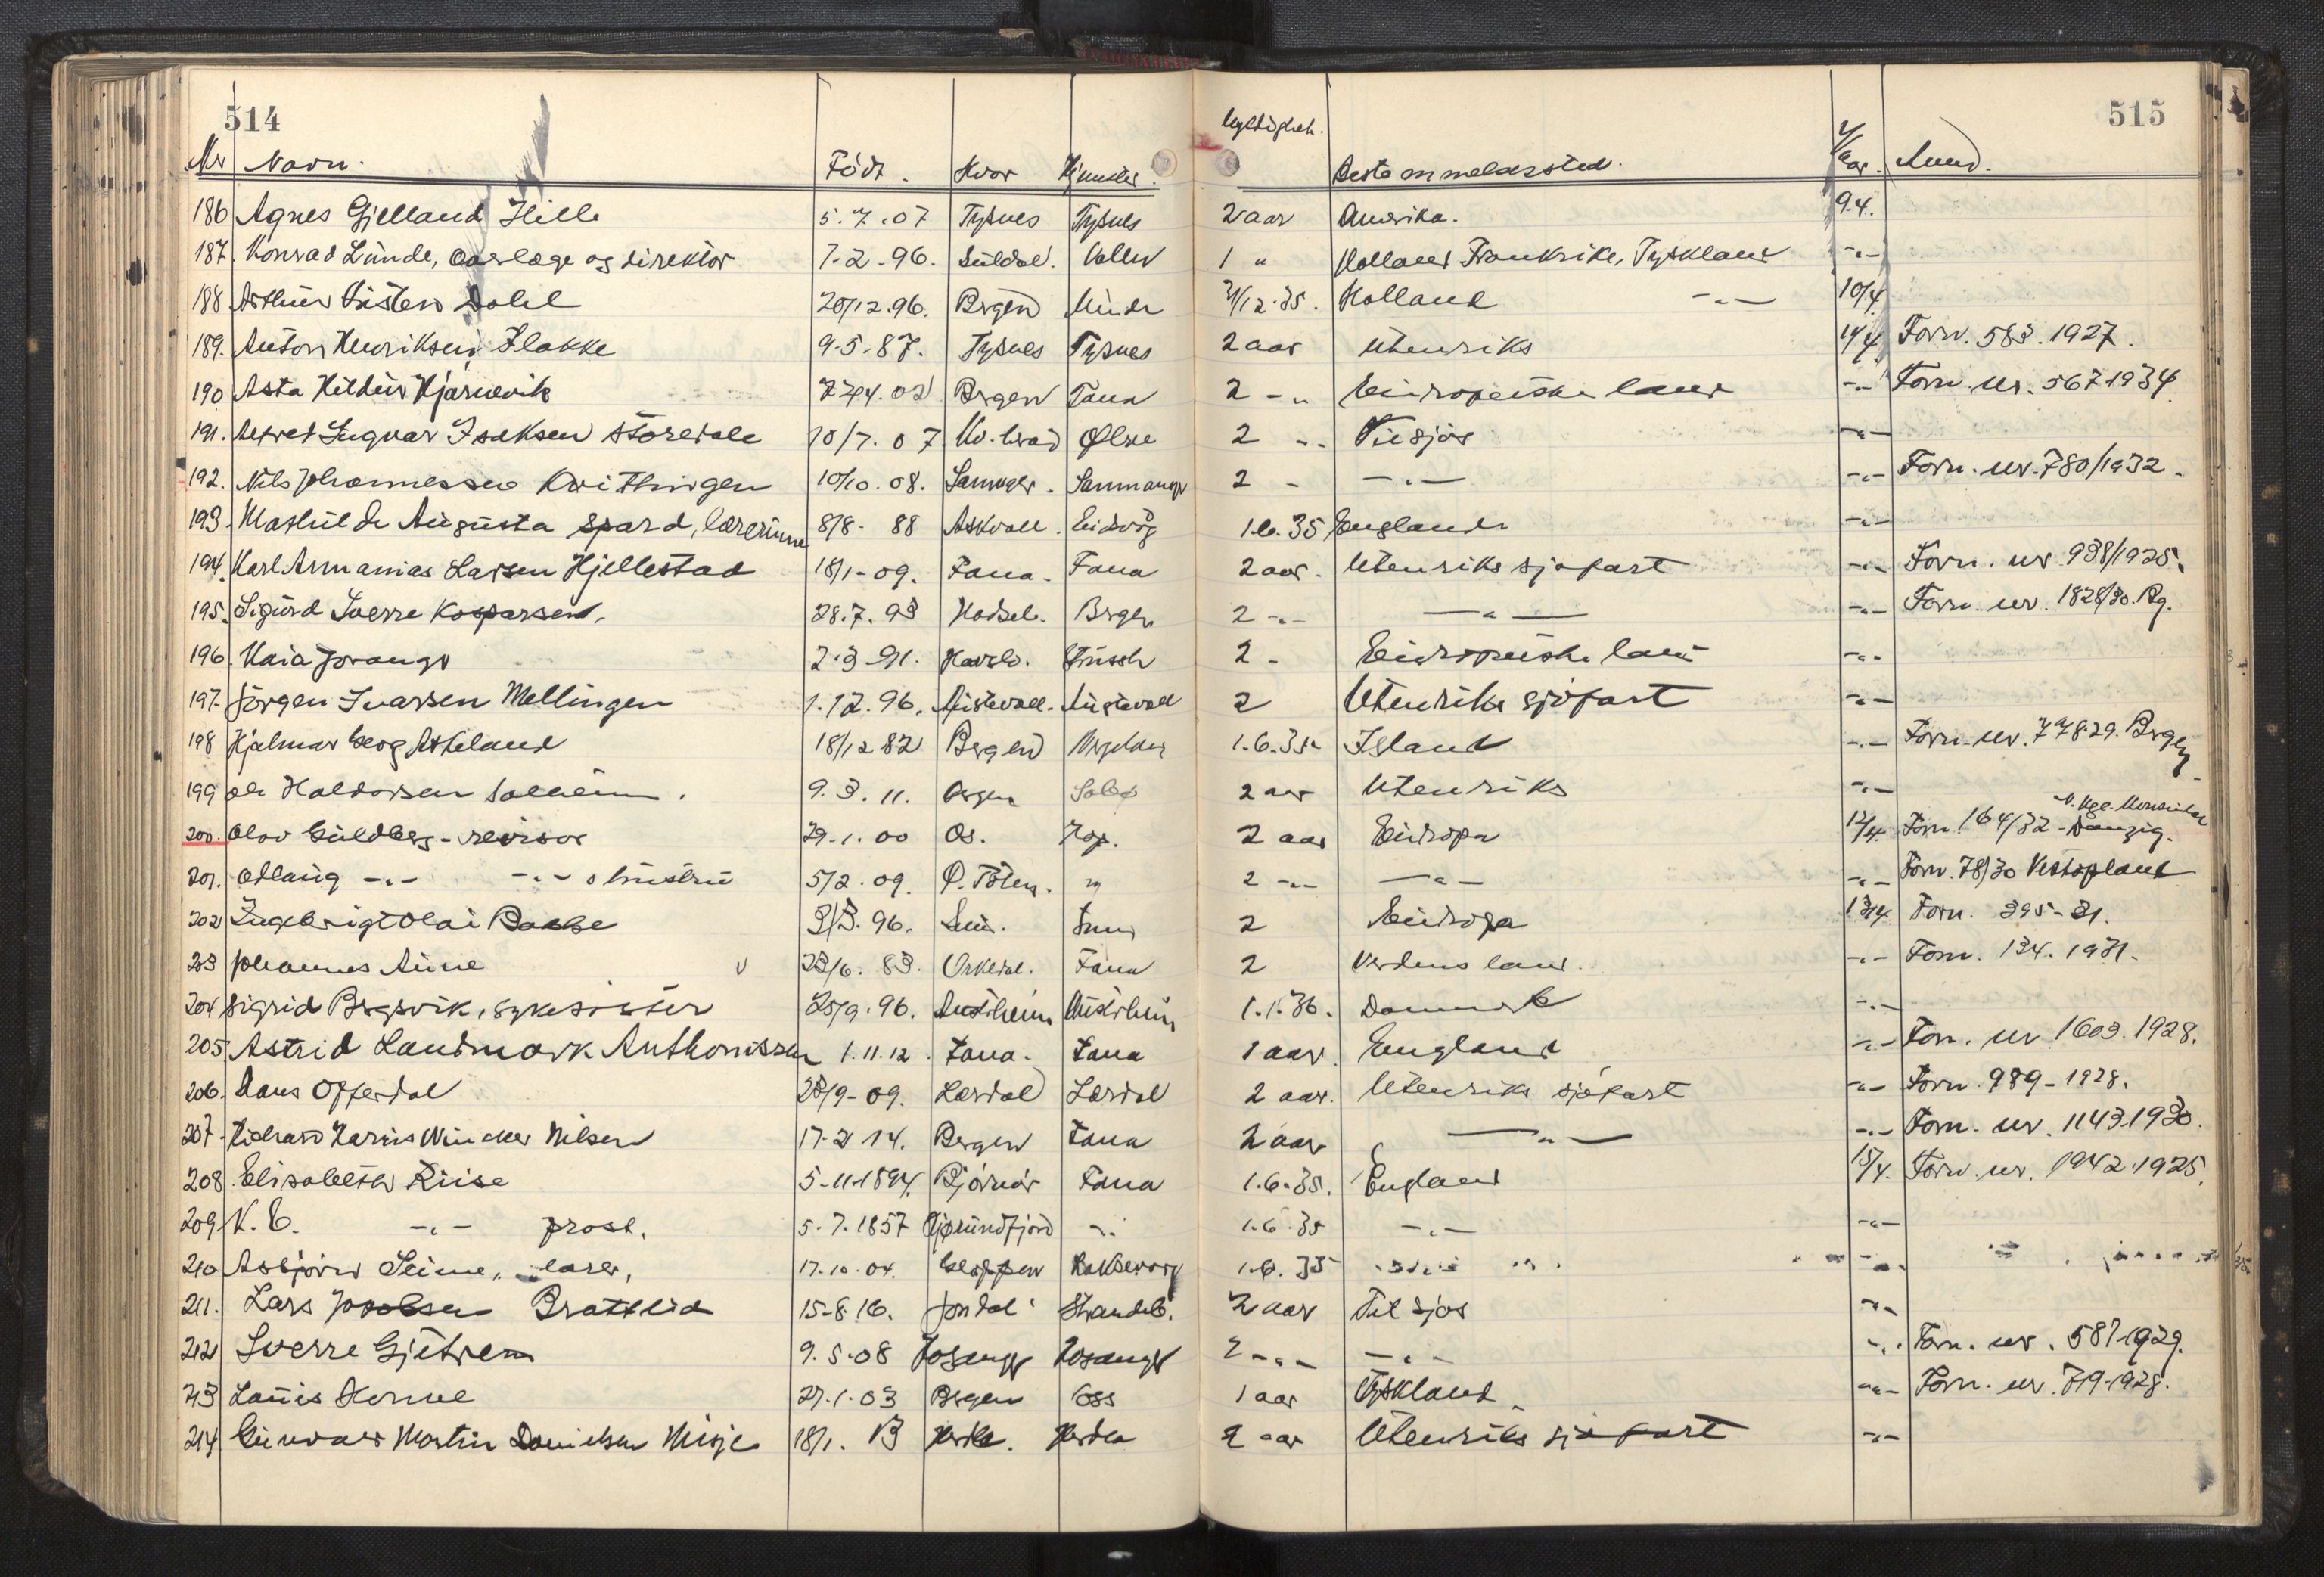 514
515
Nr Navn. Födt. Hvor Hjemster. Gyldighet. Bestemmelsessted. Anm.
186 Agnes Gjelland Hille 5.7.07 Tysnes Tysnes 2 aar Amerika. 9.4.
187. Konrad Lunde, og direktör 7.2.96. Suldal. 1 " Holland Frankrike, Tyskland -"-
188 Arthur Dahl 20/12.96. Bergen Minde 31/12.35. Holland -"- 10/4
189. Anton Henriksen Flakke 9-5-87. Tysnes Tysnes 2 aar Utenriks 11/4 Forn. 583.1927.
190 Asta Hildur Hjarnevik 02 Bergen Fana 2 -" Europeiske land -"- Forn. nr. 567 1934
191. Ingvar Isaksen Storedale 10/7.07 Kv. herad Ølve 2 -" Til sjös -"-
192. Nils Johannessen Kvittingen 10/10.08. Samnanger 2 - -"- -"- Forn. nr. 780/1932.
193. Mathilde Augusta Spard, lærerinne 8/8-88 Askvoll. Eidsvåg 1.6.35 England -"-
194. Karl Annanias Larsen Hjellestad 18/1-09. Fana. Fana 2 aar. Utenriks sjöfart -"- Forn. nr 938/1925.
195. Sigurd Sverre Kasparsen. 28.7.93 Hadsel. Bergen 2 -"- -"- -"- Forn. nr. 1828/30. Bg.
196. Kaia 2.3-91. 2 - Europeiske land -"-
197. Jörgen Ivarsen Mellingen 1.12.96. Austevoll. Austevoll 2 Utenriks sjöfart -"-
198 Hjalmar Georg Askeland 18/12 82 Bergen 1.6.35 Island -"- Forn. nr. 778.29. Bergen
199 Ole Haldorsen Solheim. 9.3.11. 2 aar Utenriks -"-
200. Olav Guldberg - revisor 29.1.00 Os. Hop. 2 aar Europa 12/4. Forn. 164/32 - Danzig.
201. Odlaug -"- -"- s hustru 5/2.09. Ø. Toten. " 2 -"- -"- -"- Forn. 78/30 Vestopland
202 Ingebrigt Olai Bakke 3/3.96. 2 Europa 13/4 Forn. 395-31.
203 Johannes Aune v 23/6.83. Orkdal. Fana 2 Verdens land. -"- Forn. 134.1931.
204 Sigrid Bergsvik, sykesöster 25/9.96. Austrheim Austrheim 1.1.36. Danmark -"-
205 Astrid Landmark Anthonissen 1.11.12. Fana. Fana 1 aar. England -"- Forn. nr 1603.1928.
206. Hans Offerdal 28/9-09. Lærdal Lærdal 2 aar. Utenriks sjöfart -"- Forn. 989-1928.
207. Richard Nilsen 17-2 14. Bergen Fana 2 aar -"- -"- Forn. nr. 1143.1930.
208. Elisabeth Riise 5-11-1894. Bjørnør Fana 1.6.35. England 15/4. Forn. nr. 1942.1925.
209 K. E. -"- prost. 5.7.1857 Hjørundfjord -" 1.6.35 -"- -"-
210 Asbjörn Seime, lærer, 17.10.04. Haksevarp 1.6.35
211. Lars Jacobsen Brattelid 15-8.16. Jondal Strandeb. 2 aar Til sjøs -"-
212 Sverre Gjetrem 9.5.08 Hosanger Hosanger 2 -"- -"- -"- Forn. nr. 587-1929.
213 Louis Horne 27.1.03 Bergen Oss 1 aar Tyskland -"- Forn. nr. 719-1928.
214 Gunvald Martin Danielsen Misje 18/1.13 Herdla. Herdla 2 aar Utenriks sjöfart -"-